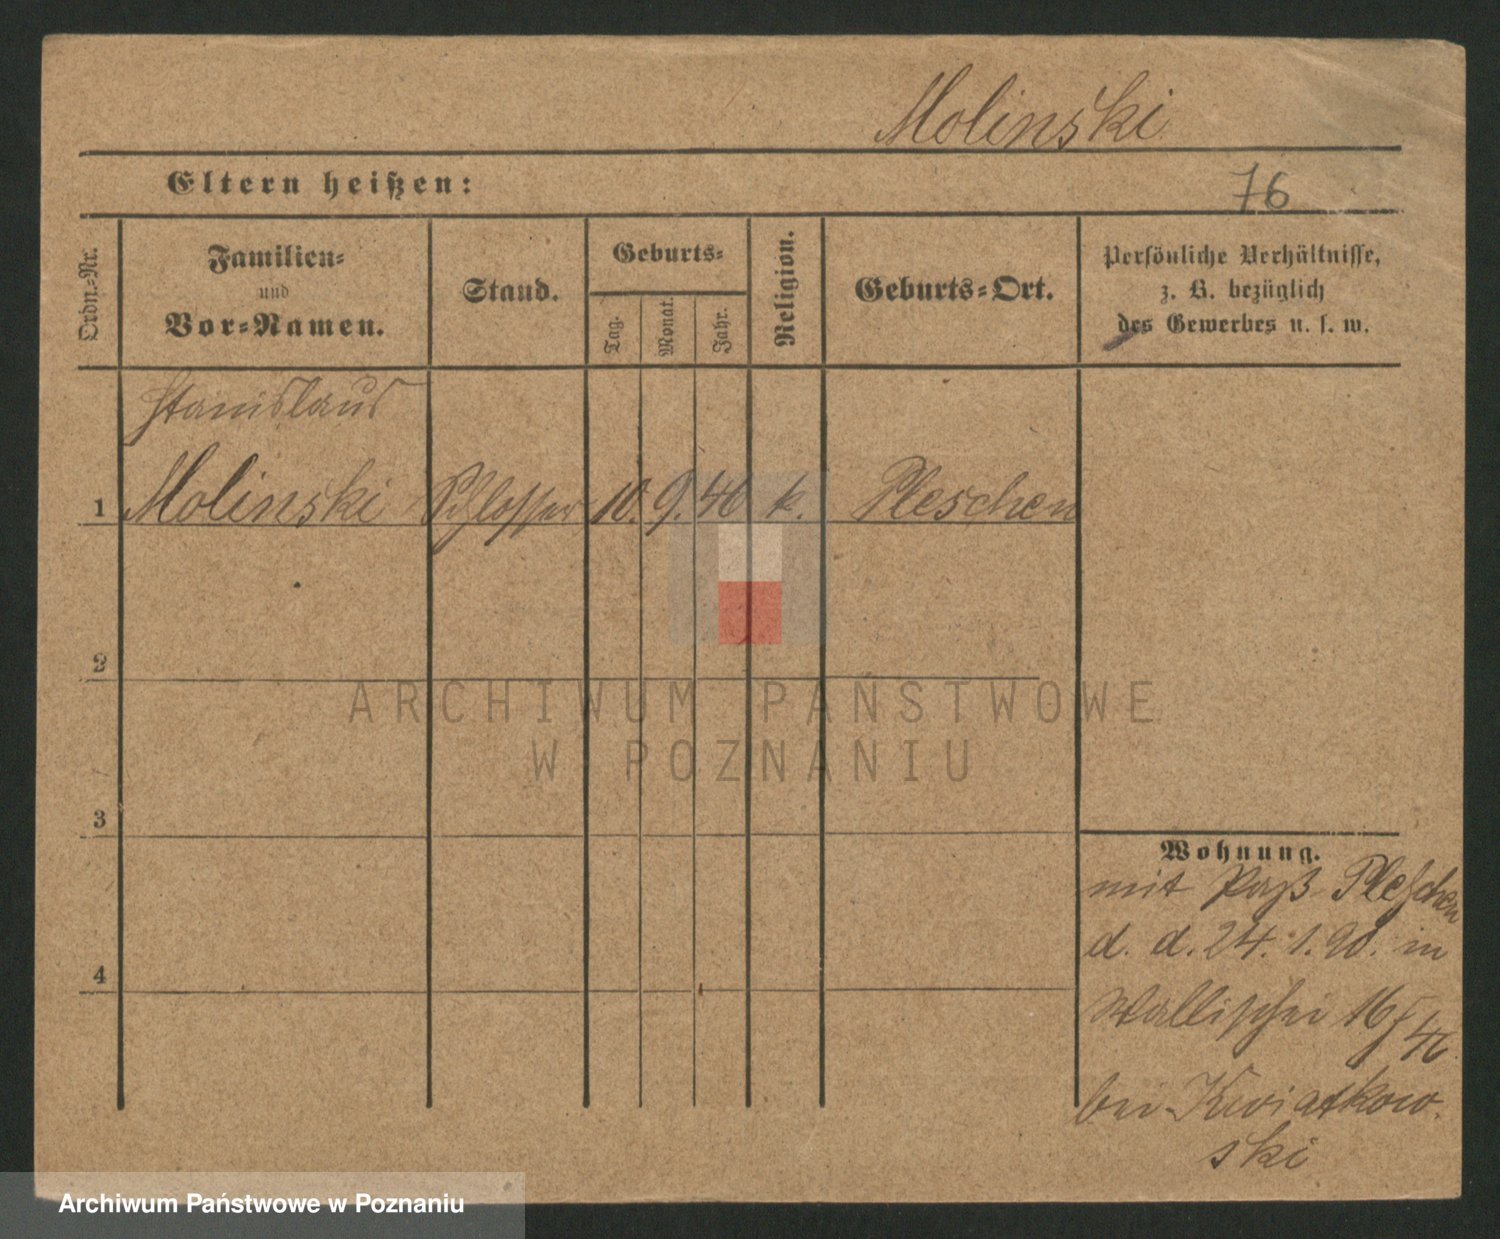 Molinski
Eltern heißen:
76
Ordn.-Nr.
Familien-
und
Vor-Namen.
Stand.
Geburts-
Tag.
Monat.
Jahr.
Religion.
Geburts-Ort.
Persönliche Verhältnisse,
z. B. bezüglich
des Gewerbes u. s. w.
Stanislaus
1 Molinski Schlosser 10. 9. 46 k. Pleschen
2
3
4
Wohnung.
mit Paß Pleschen
d. d. 24. 1. 90. in
Wallischei 16/
bei Kwiatkow-
ski
ARCHIWUM PAŃSTWOWE
W POZNANIU
Archiwum Państwowe w Poznaniu